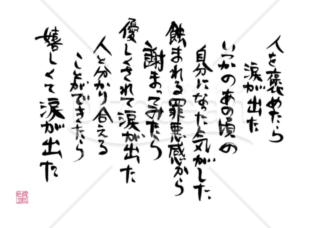 人を褒めたら
涙が出た
いつかのあの頃の
自分になった気がした
蝕まれる罪悪感から
謝まってみたら
優しくされて涙が出た
人と分かり合える
ことができたら
嬉しくて涙が出た